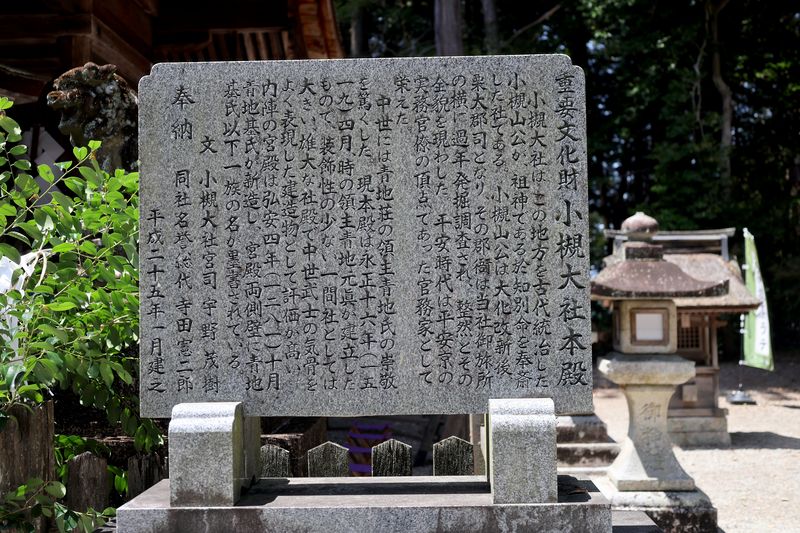 重要文化財 小槻大社本殿
小槻大社は、この地方を古代統治した
小槻山公が、祖神である於知別命を奉斎
した社である。小槻山公は大化改新後、
栗太郡司となり、その郡衙は当社御旅所
の横に過年発掘調査され、整然とその
全貌を現わした。平安時代は平安京の
実務官僚の頂点であった官務家として
栄えた。
中世には青地荘の領主青地氏の崇敬
を篤くした。現本殿は永正十六年(一五
一九)四月時の領主青地元真が建立した
もので、装飾性の少ない一間社としては
大き、雄大な社殿で中世武士の気骨を
よく表現した建造物として評価が高い。
内陣の宮殿は弘安四年(一二八一)十月
青地基氏が新造し、宮殿両側壁に青地
基氏以下一族の名が墨書されている。
文 小槻大社宮司 宇野茂樹
奉納 同社名誉総代 寺田憲二郎
平成二十五年一月建之
御神